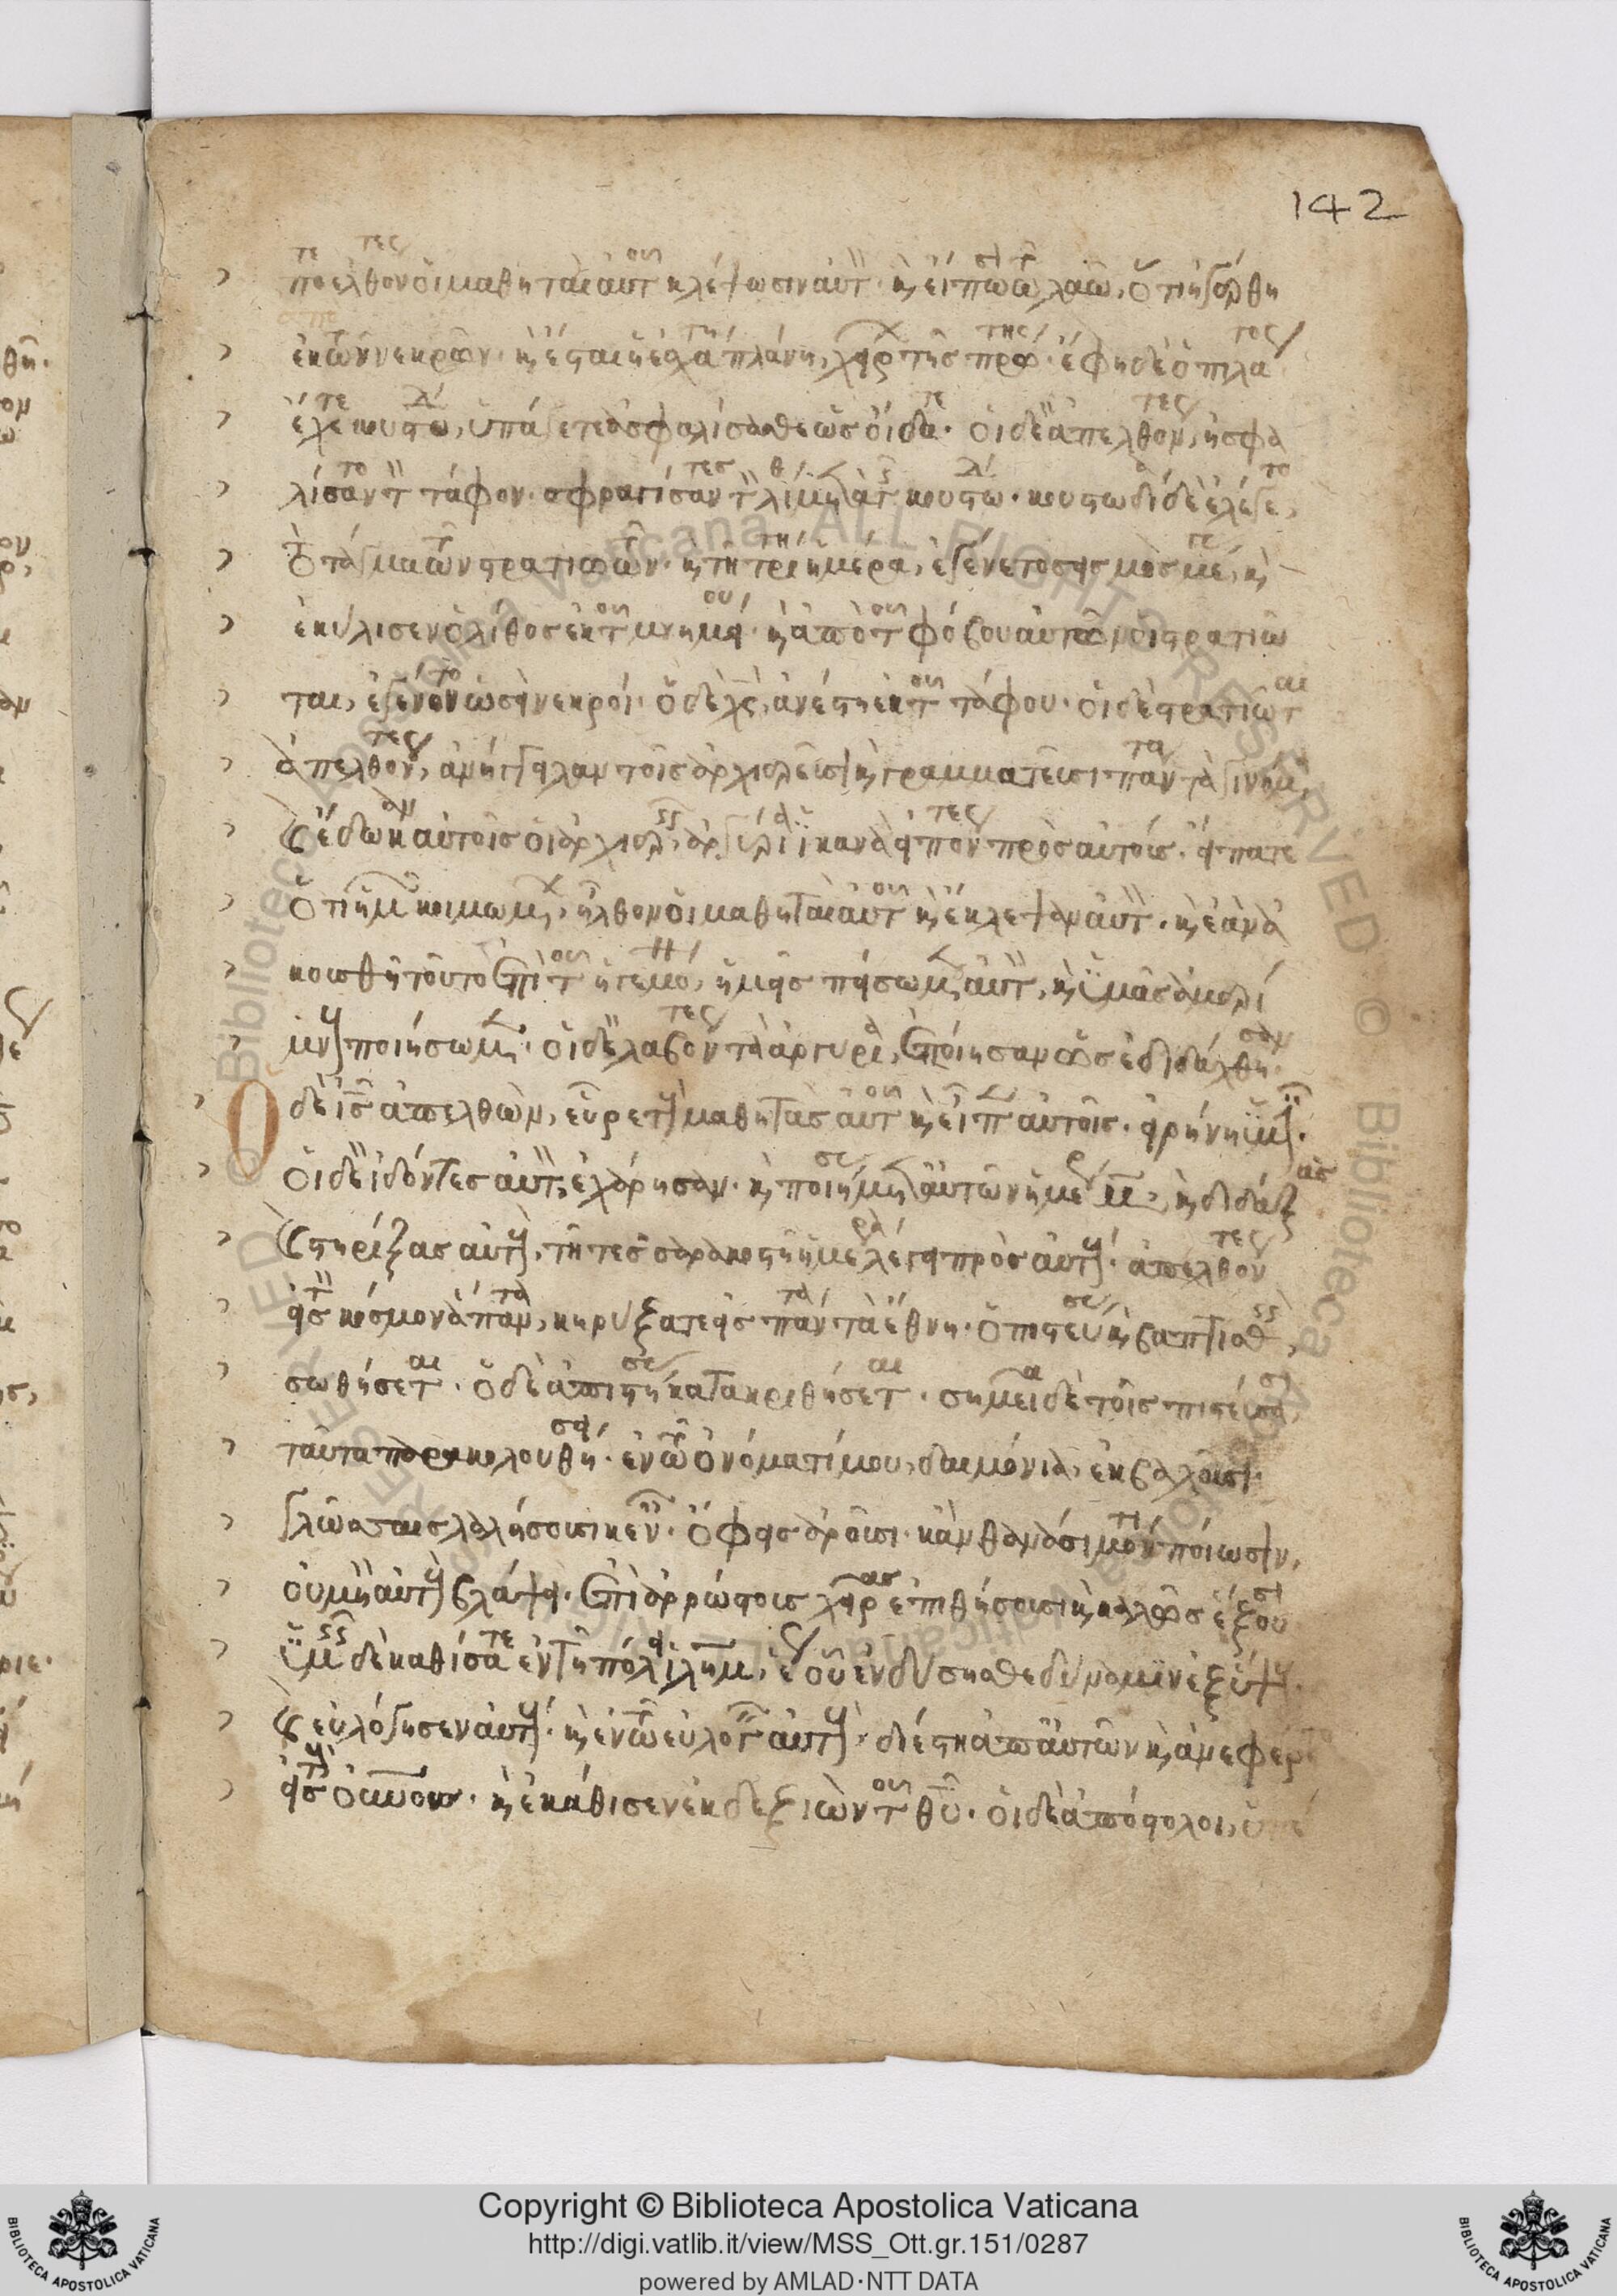 142
ποτε ἐλθόντες οἱ μαθηταὶ αὐτοῦ κλέψωσιν αὐτὸν· καὶ εἴπωσι τῷ λαῷ, ὅτι ἠγέρθη
ἐκ τῶν νεκρῶν· καὶ ἔσται ἡ ἐσχάτη πλάνη, χείρων τῆς πρώτης· ἔφη δὲ ὁ πιλάτος
ἔχετε κουστωδίαν, ὑπάγετε ἀσφαλίσασθε ὡς οἴδατε· οἱ δὲ ἀπελθόντες, ἠσφα
λίσαντο τὸν τάφον· σφραγίσαντες τὸν λίθον μετὰ τῆς κουστωδίας· κουστωδία δὲ ἐλέγετο,
τὸ τάγμα τῶν στρατιωτῶν· καὶ τῇ τρίτῃ ἡμέρα, ἐγένετο σεισμὸς μέγας, καὶ
ἐκύλισεν ὁ λίθος ἐκ τοῦ μνημείου· καὶ ἀπὸ τοῦ φόβου αὐτοῦ οἱ στρατιῶ
ται, ἐγένοντο ὡσεὶ νεκροί· ὁ δὲ χς, ἀνέστη ἐκ τοῦ τάφου· οἱ δὲ στρατιῶται
ἀπελθόντες, ἀνήγγειλαν τοῖς ἀρχιερεῦσι καὶ γραμματεῦσι πάντα τὰ γινόμενα,
καὶ ἔδωκαν αὐτοῖς οἱ ἀρχιερεῖς, ἀργύρια ἱκανὰ εἰπόντες πρὸς αὐτούς· εἴπατε
ὅτι ἡμῶν κοιμωμένων, ἦλθον οἱ μαθηταὶ αὐτοῦ καὶ ἔκλεψαν αὐτὸν· καὶ ἐὰν ἀ
κουσθῇ τοῦτο ἐπὶ τοῦ ἡγεμόνος, ἡμεῖς πείσωμεν αὐτὸν, καὶ ὑμᾶς ἀμερί
μνους ποιήσωμεν· οἱ δὲ λαβόντες τὰ ἀργύρια, ἐποίησαν ὡς ἐδιδάχθησαν·
Ὁ δὲ ις ἀπελθὼν, εὗρε τοὺς μαθητὰς αὐτοῦ καὶ εἶπεν αὐτοῖς· εἰρήνη ὑμῖν·
οἱ δὲ ἰδόντες αὐτὸν, ἐχάρησαν· καὶ ποιήσας μετ' αὐτῶν ἡμέρας μ, καὶ διδάξας
καὶ στηρίξας αὐτοὺς, τῇ τεσσαρακοστῇ ἡμέρα λέγει πρὸς αὐτούς· ἀπελθόντες
εἰς τὸν κόσμον ἅπαντα, κηρύξατε εἰς πάντα τὰ ἔθνη· ὁ πιστεύσας καὶ βαπτισθεὶς,
σωθήσεται· ὁ δὲ ἀπιστήσας κατακριθήσεται· σημεῖα δὲ τοῖς πιστεύσασι
ταῦτα παρακολουθήσει· ἐν τῷ ὀνόματί μου, δαιμόνια, ἐκβαλοῦσι·
γλώσσαις λαλήσουσι καιναῖς· ὄφεις ἀροῦσι· κἂν θανάσιμόν τι πίωσιν,
οὐ μὴ αὐτοὺς βλάψει· ἐπὶ ἀρρώστοις χεῖρας ἐπιθήσουσι καὶ καλῶς ἕξουσι
ὑμεῖς δὲ καθίσατε ἐν τῇ πόλει ιλημ, ἕως οὗ ἐνδύσησθε δύναμιν ἐξ ὕψους·
καὶ εὐλόγησεν αὐτούς· καὶ ἐν τῷ εὐλογεῖν αὐτοὺς· διέστη ἀπ' αὐτῶν καὶ ἀνεφέρετο
εἰς τοὺς οὐνους· καὶ ἐκάθισεν ἐκ δεξιῶν τοῦ θυ· οἱ δὲ ἀπόστολοι,
Copyright © Biblioteca Apostolica Vaticana
http://digi.vatlib.it/view/MSS_Ott.gr.151/0287
powered by AMLAD·NTT DATA